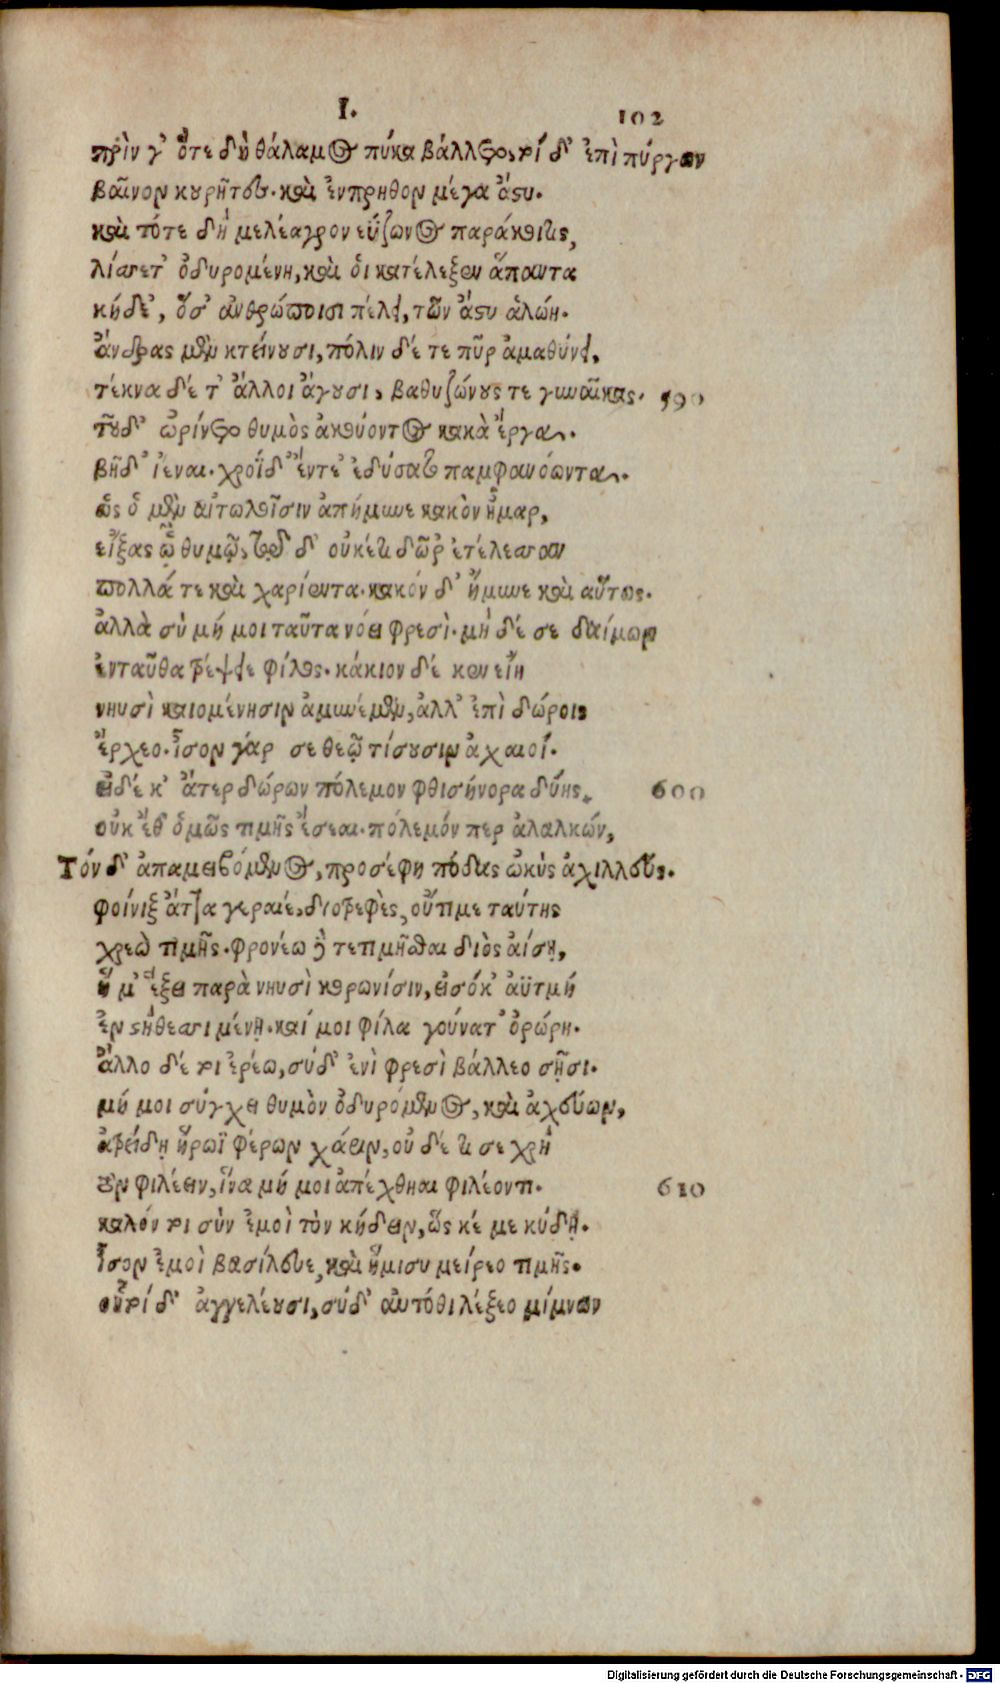 Ι. 102
πρίν γ' ὅτε δὴ θάλαμος πύκα βάλλετο, τοὶ δ' ἐπὶ πύργων
βαῖνον κουρῆτες. καὶ ἐνπρηθον μέγα ἄστυ.
καὶ τότε δὴ μελέαγρον εὔζωνος παράκοιτις,
λίσσετ' ὀδυρομένη, καὶ οἱ κατέλεξεν ἅπαντα
κήδε', ὅσ' ἀνθρώποισι πέλει, τῶν ἄστυ ἁλώη.
ἄνδρας μὲν κτείνουσι, πόλιν δέ τε πῦρ ἀμαθύνει,
τέκνα δέ τ' ἄλλοι ἄγουσι, βαθυζώνους τε γυναῖκας. 590
τοῦ δ' ὠρίνετο θυμὸς ἀκούοντος κακὰ ἔργα.
βῆ δ' ἰέναι. χροῒ δ' ἔντε' ἐδύσατο παμφανόωντα.
ὣς ὁ μὲν αἰτωλοῖσιν ἀπήμυνε κακὸν ἦμαρ,
εἴξας ᾧ θυμῷ, τῷ δ' οὐκέτι δῶρ' ἐτέλεσσαν
πολλά τε καὶ χαρίεντα. κακόν δ' ἤμυνε καὶ αὔτως.
ἀλλὰ σὺ μή μοι ταῦτα νόει φρεσὶ. μὴ δέ σε δαίμων
ἐνταῦθα τρέψειε φίλος. κάκιον δέ κεν εἴη
νηυσὶ καιομένησιν ἀμυνέμεν, ἀλλ' ἐπὶ δώροις
ἔρχεο. ἶσον γάρ σε θεῷ τίσουσιν ἀχαιοί.
εἰ δέ κ' ἄτερ δώρων πόλεμον φθισήνορα δύης, 600
οὐκ ἔθ' ὁμῶς τιμῆς ἔσεαι. πόλεμόν περ ἀλαλκών,
Τόν δ' ἀπαμειβόμενος, προσέφη πόδας ὠκὺς ἀχιλλεύς.
φοίνιξ ἄττα γεραιέ, διοτρεφὲς, οὔ τι με ταύτης
χρεὼ τιμῆς. φρονέω δὲ τετιμῆσθαι διὸς αἴσῃ,
ἥ μ' ἕξει παρὰ νηυσὶ κορωνίσιν, εἰσόκ' ἀϋτμή
ἐν στήθεσσι μένῃ. καί μοι φίλα γούνατ' ὀρώρη.
ἄλλο δέ τοι ἐρέω, σύ δ' ἐνὶ φρεσὶ βάλλεο σῇσι.
μή μοι σύγχει θυμὸν ὀδυρόμενος, καὶ ἀχεύων,
ἀτρείδῃ ἥρωϊ φέρων χάριν, οὐ δέ τι σε χρή
τὸν φιλέειν, ἵνα μή μοι ἀπέχθηαι φιλέοντι. 610
καλόν τοι σὺν ἐμοὶ τὸν κήδειν, ὥς κέ με κύδῃ.
ἶσον ἐμοὶ βασίλευε, καὶ ἥμισυ μείρεο τιμῆς.
οὗτοί δ' ἀγγελέουσι, σύ δ' αὐτόθι λέξεο μίμνων
Digitalisierung gefördert durch die Deutsche Forschungsgemeinschaft - DFG